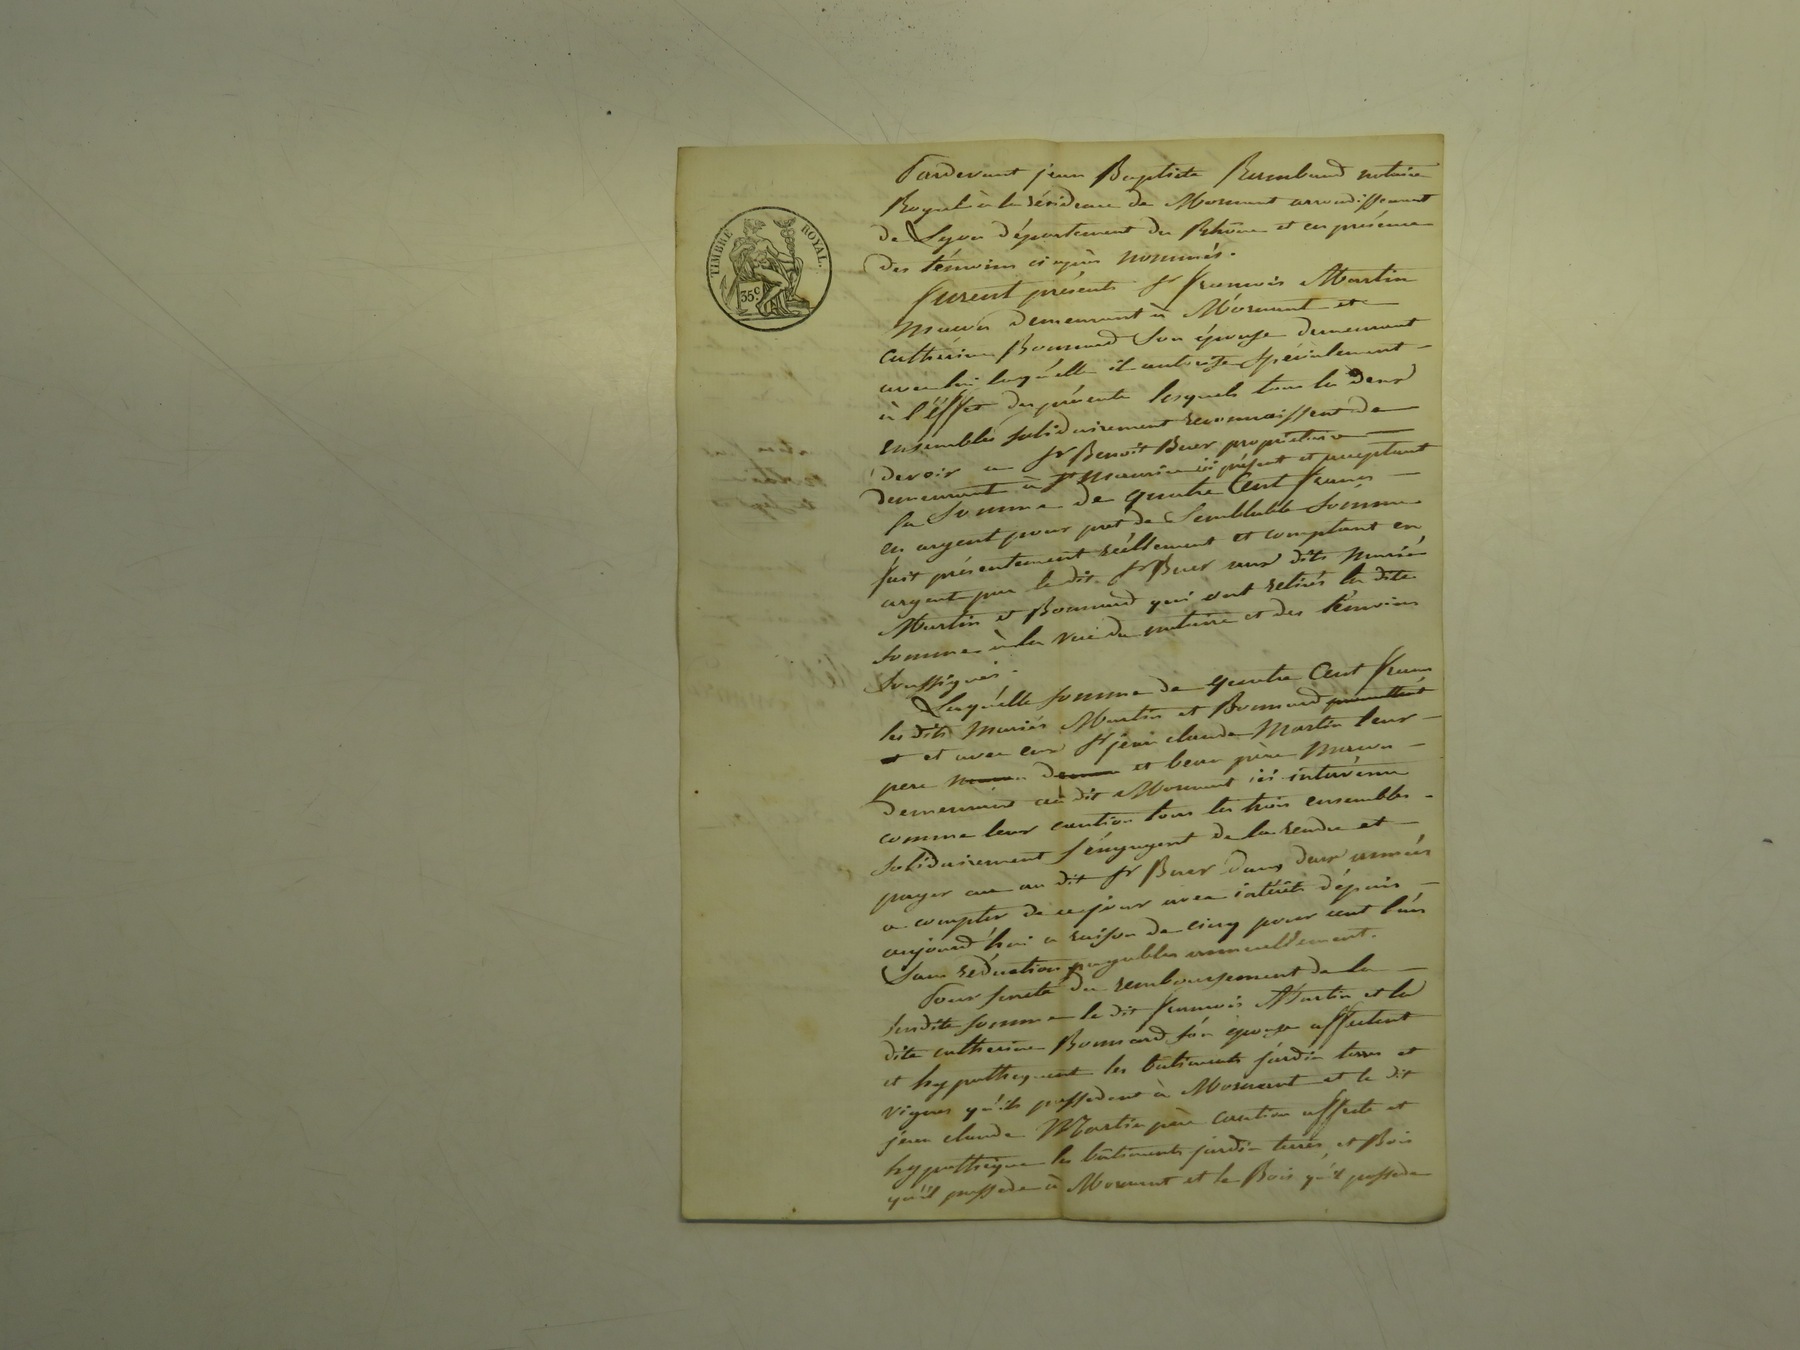 TIMBRE ROYAL.
35c
Pardevant jean Baptiste Rambaud notaire
Royal à la résidence de Mornant arrondissement
de Lyon département du Rhône et en présence
des témoins ci après nommés.
furent présents Sr françois Martin
maçon demeurant à Mornant et
Cathérine Bonnard Son épouse demeurant
avec lui laquélle il autorise Spécialement
à l'Éffet des présentes lesquels tous les deux
ensembles solidairement reconnaissent de
devoir a Sr Benoit Buer propriétaire
demeurant à St Maurice ici présent et acceptant
la Somme de quatre Cent francs
en argent pour prêt de Semblable Somme
fait présentement réellement et comptant en
argent par le dit Sr Buer aux dits Mariés
Martin et Bonnard qui ont retirés la dite
Somme à la vue du notaire et des témoins
Soussignés.
Laquélle somme de quatre Cent francs
les dits Mariés Martin et Bonnard promettent
et et avec eux Sr jean claude Martin leur
père et beau père Maçon
demeurant au dit Mornant ici intervenu
comme leur caution tous les trois ensembles
Solidairement S'éngagent de la rendre et
payer au dit Sr Buer dans deux années
a compter de ce jour avec intérêts dépuis
aujourd'hui a raison de cinq pour cent l'an
Sans réduction payables annuellement.
Pour sureté du remboursement de la
Susdite somme le dit françois Martin et la
dite Catherine Bonnard són épouse affectent
et hypothequent les bâtiments jardin terres et
vignes qu'ils possedent à Mornant et le dit
jean claude Martin père caution affecte et
hypothéque les bâtiments jardin terres et Bois
qu'il possede à Mornant et le Bois qu'il possede